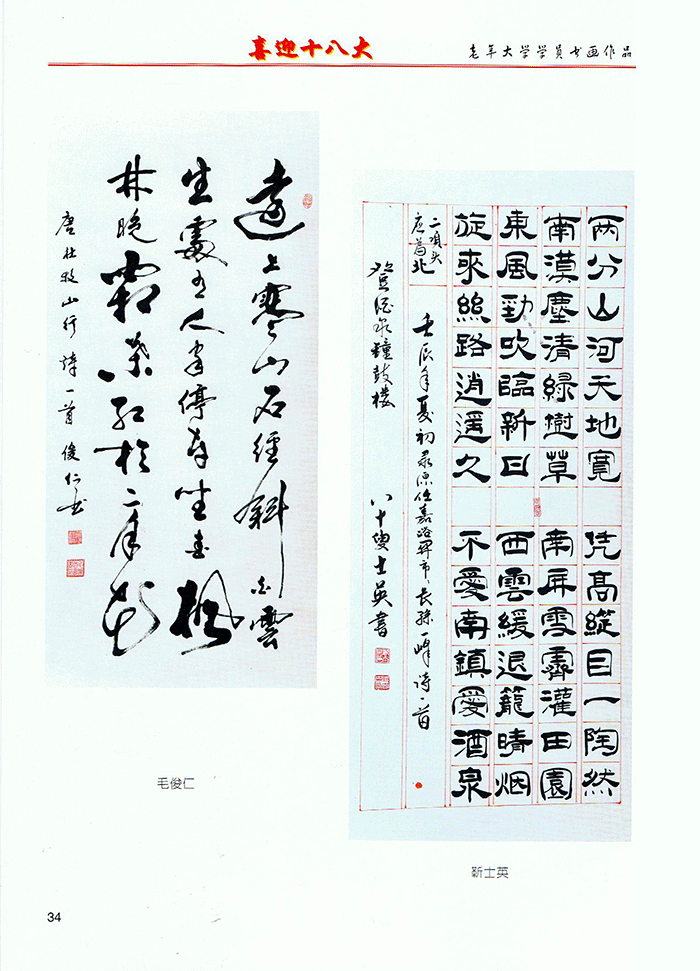 喜迎十八大
老年大学学员书画作品
遠上寒山石徑斜白雲
生處有人家停車坐愛楓
林晚霜葉紅於二月花
唐杜牧山行詩一首俊仁书
毛俊仁
两分山河天地寬凭高縱目一陶然
南漠塵清緑樹草南屏雪霽灌田園
東風勁吹臨新日西雲緩退籠晴烟
旋來絲路逍遥久不愛南鎮愛酒泉
二項头
應為北
壬辰年夏初录原任嘉峪関市長孫一峰诗一首
登酒泉鐘鼓楼八十叟士英書
靳士英
34